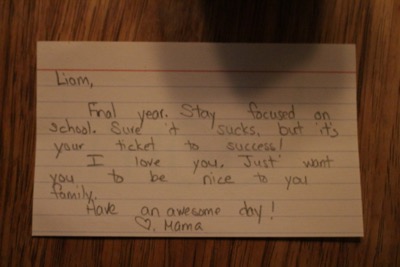 Liam,
Final year. Stay focused on
school. Sure it sucks, but it's
your ticket to success!
I love you. Just want
you to be nice to you
family.
Have an awesome day!
♡, Mama